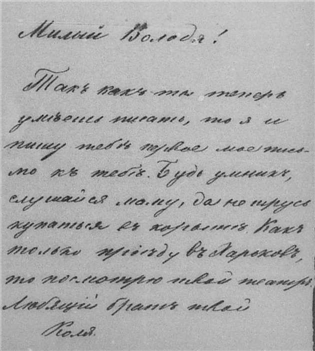 Милый Володя!
Такъ какъ ты теперь
умѣешь писать, то я и
пишу тебѣ первое мое пись-
мо къ тебѣ. Будь умникъ,
слушайся маму, да не трусь
купаться въ корытѣ. Какъ
только пріѣду въ Харьковъ,
то посмотрю твой театръ.
Любящій братъ твой
Коля.